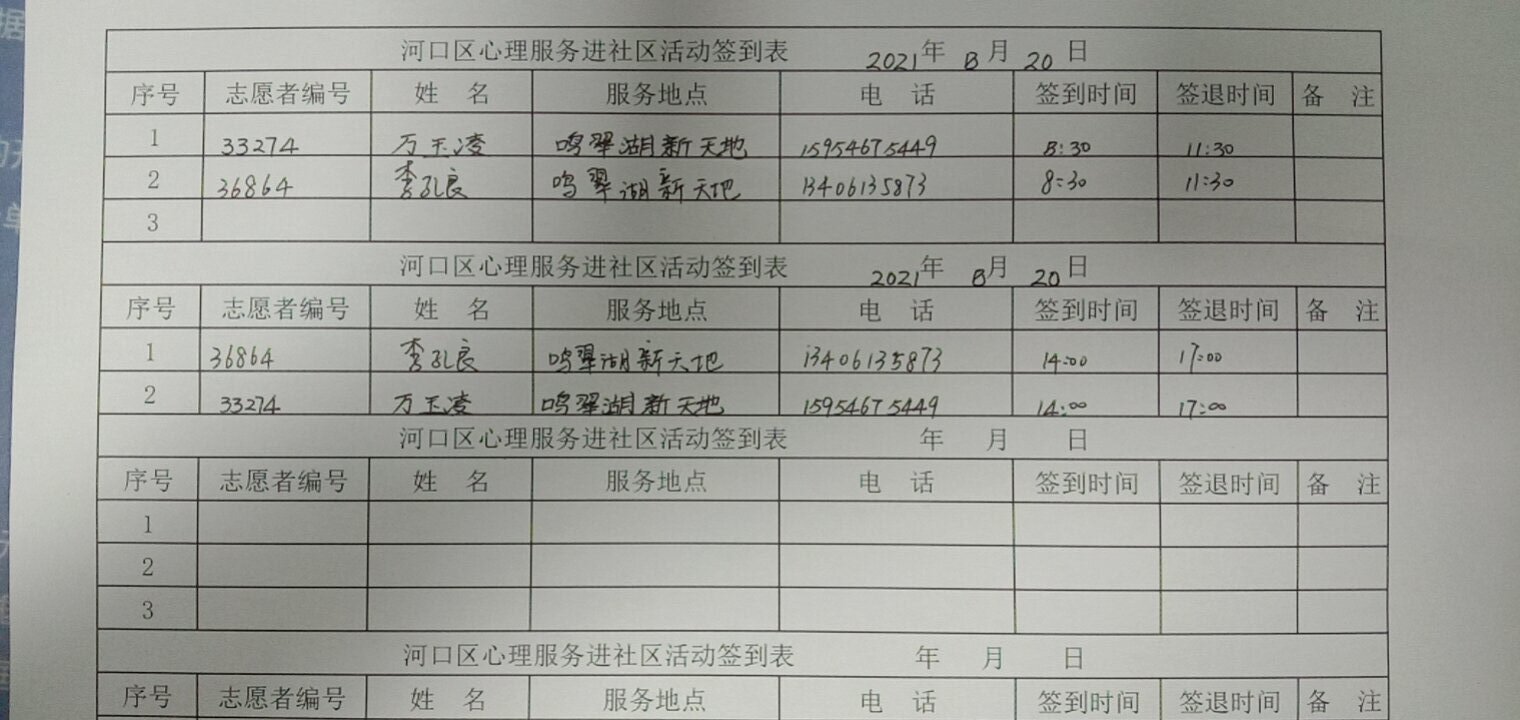 河口区心理服务进社区活动签到表 2021年 8月 20日
序号 志愿者编号 姓 名 服务地点 电 话 签到时间 签退时间 备 注
1 33274 万玉凌 鸣翠湖新天地 15954675449 8:30 11:30
2 36864 李孔良 鸣翠湖新天地 13406135873 8:30 11:30
3
河口区心理服务进社区活动签到表 2021年 8月 20日
序号 志愿者编号 姓 名 服务地点 电 话 签到时间 签退时间 备 注
1 36864 李孔良 鸣翠湖新天地 13406135873 14:00 17:00
2 33274 万玉凌 鸣翠湖新天地 15954675449 14:00 17:00
河口区心理服务进社区活动签到表 年 月 日
序号 志愿者编号 姓 名 服务地点 电 话 签到时间 签退时间 备 注
1
2
3
河口区心理服务进社区活动签到表 年 月 日
序号 志愿者编号 姓 名 服务地点 电 话 签到时间 签退时间 备 注